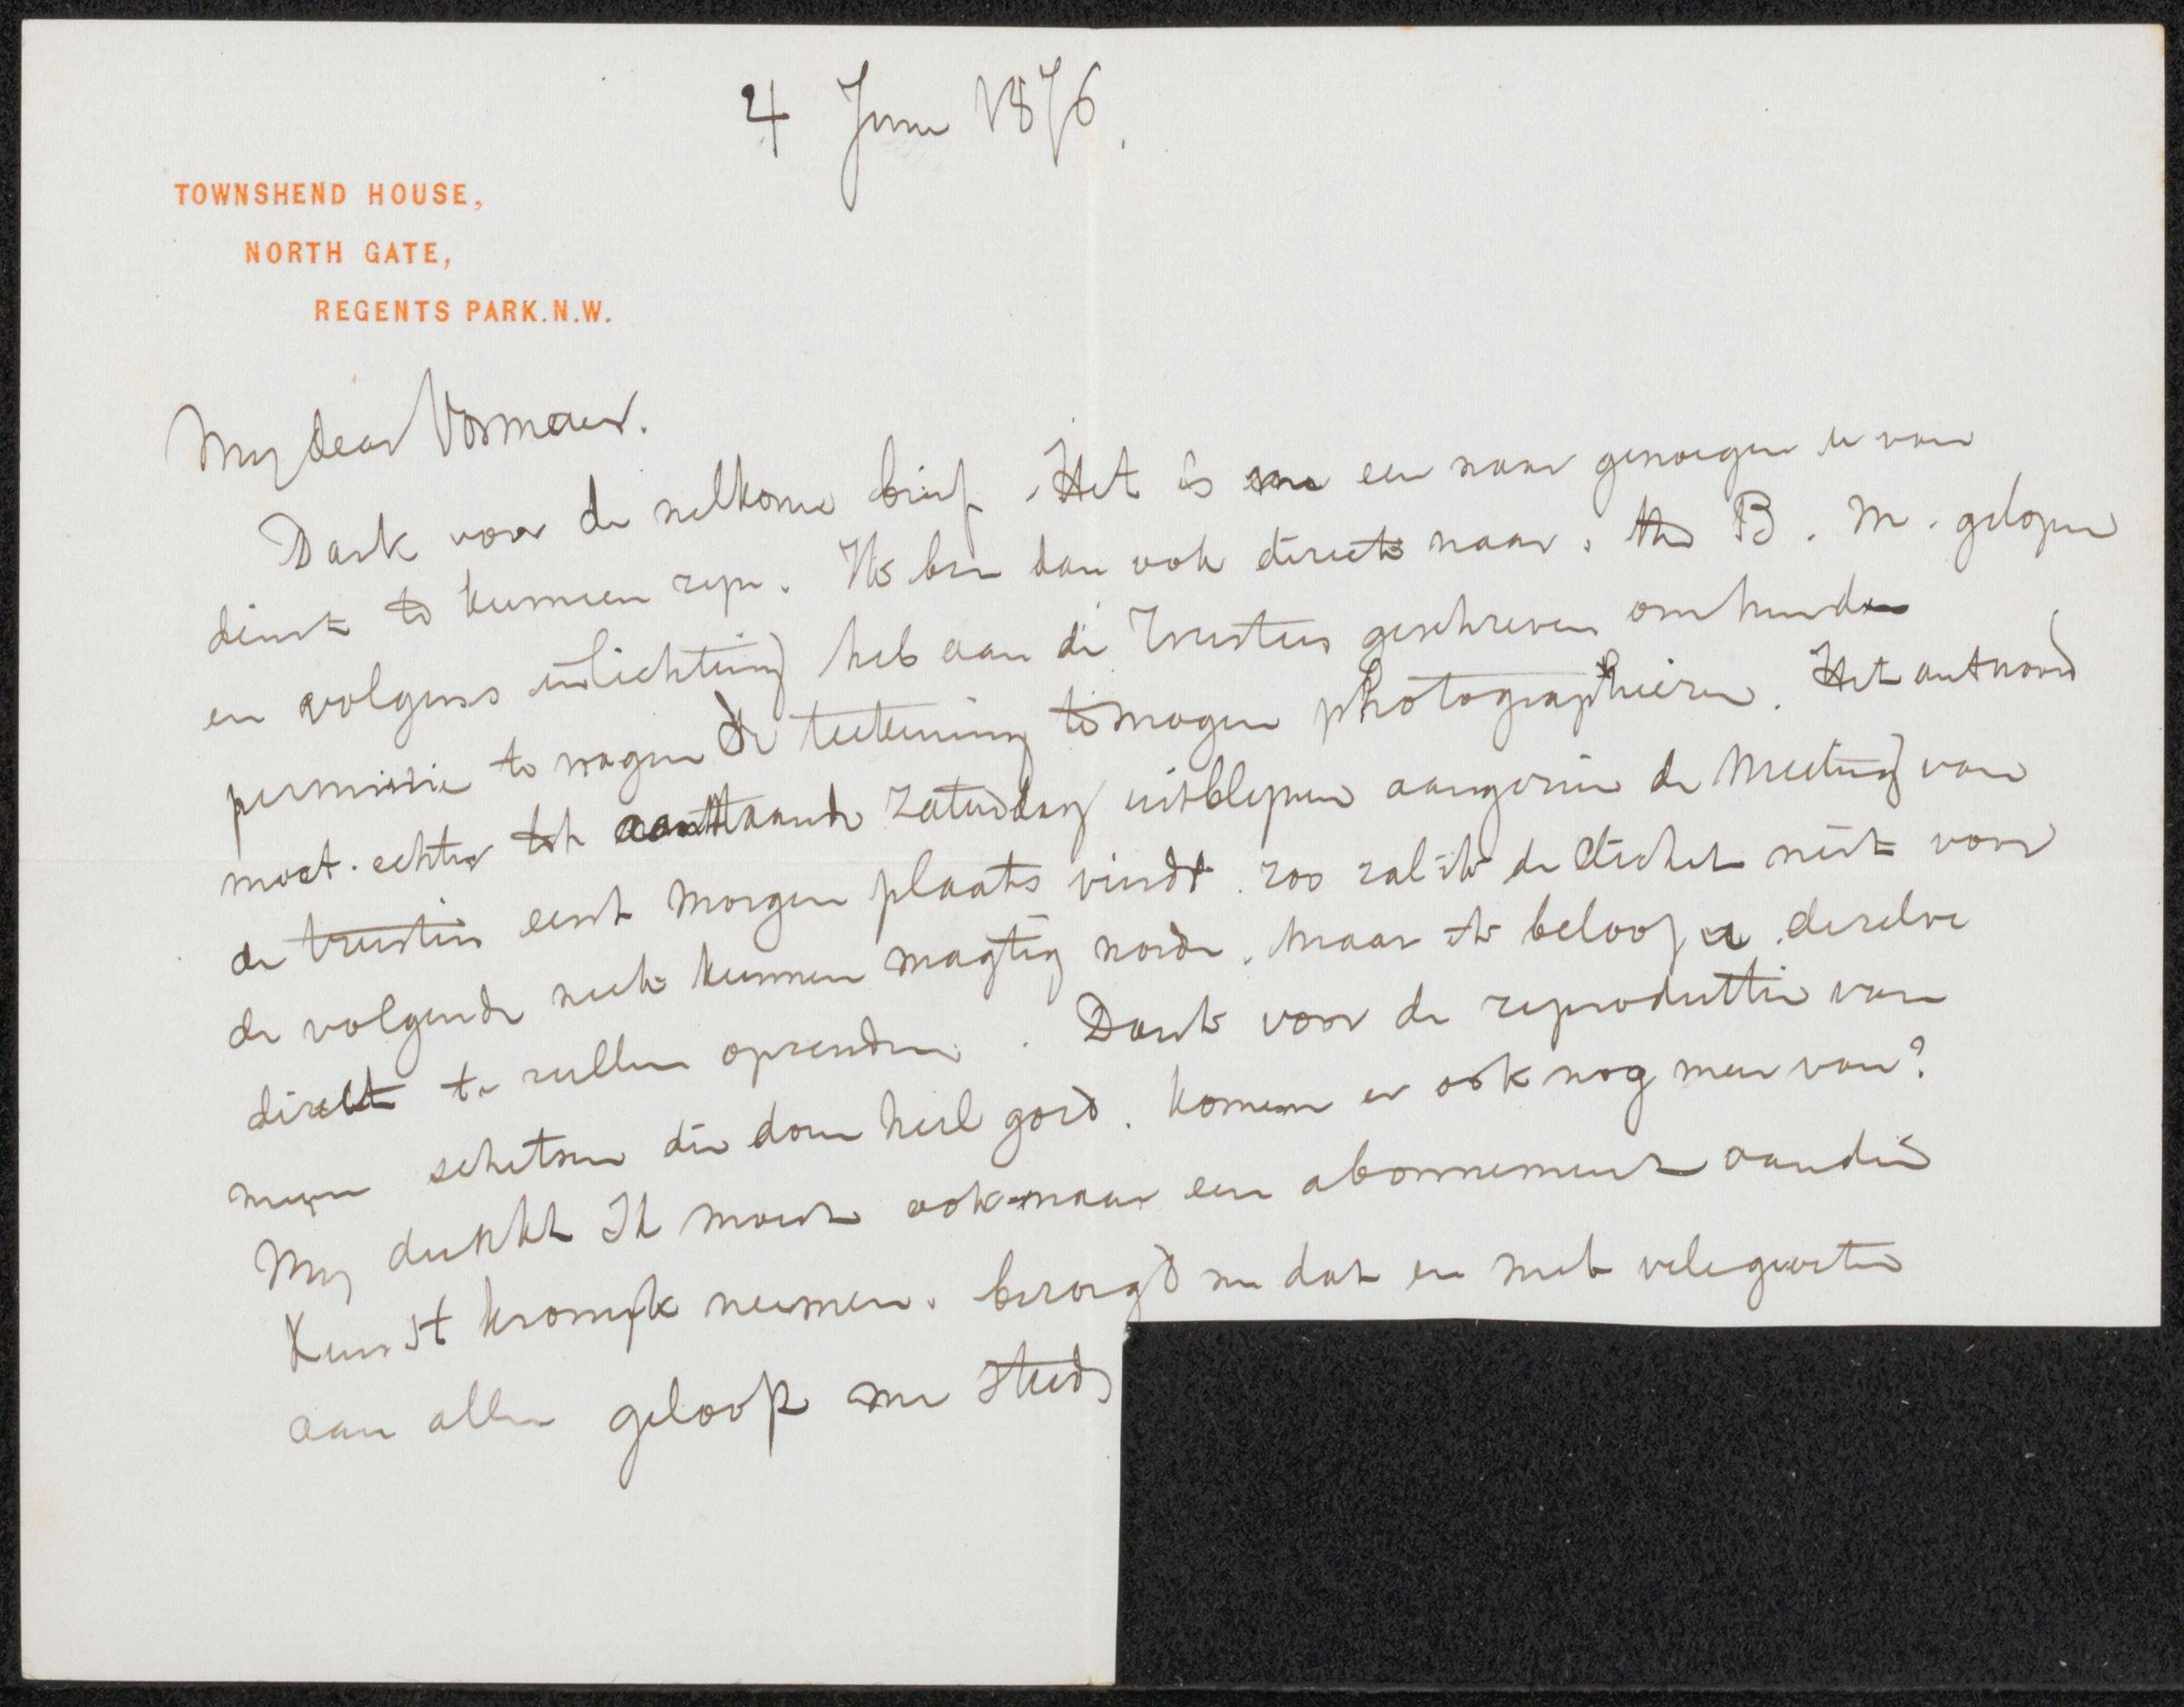 4 June 1876.
TOWNSHEND HOUSE,
NORTH GATE,
REGENTS PARK.N.W.
My dear Vosmaer.
Dank voor de welkome brief. Het is me een waar genoegen u van
dienst te kunnen zyn. Ik ben dan ook direct naar the B. M. gelopen
en volgens inlichting heb aan de Trustees geschreven om hunder
permissie te vragen de teekening te mogen photographieren. Het antwoord
moet echter tot aanstaande Zaturdag uitblijven aangezien de Meeting van
de trustees eerst morgen plaats vindt. zoo zal ik de cliché niet voor
de volgende week kunnen magtig worde. Maar ik beloof u dezelve
direkt te zullen opzenden. Dank voor de reproduktie van
myne schetsen die doen heel goed. komen er ook nog meer van?
My dunkt Ik moest ook maar een abonnement aan die
Kunst kronijk neemen. bezorgd me dat en met vele groeten
aan allen geloof me steeds